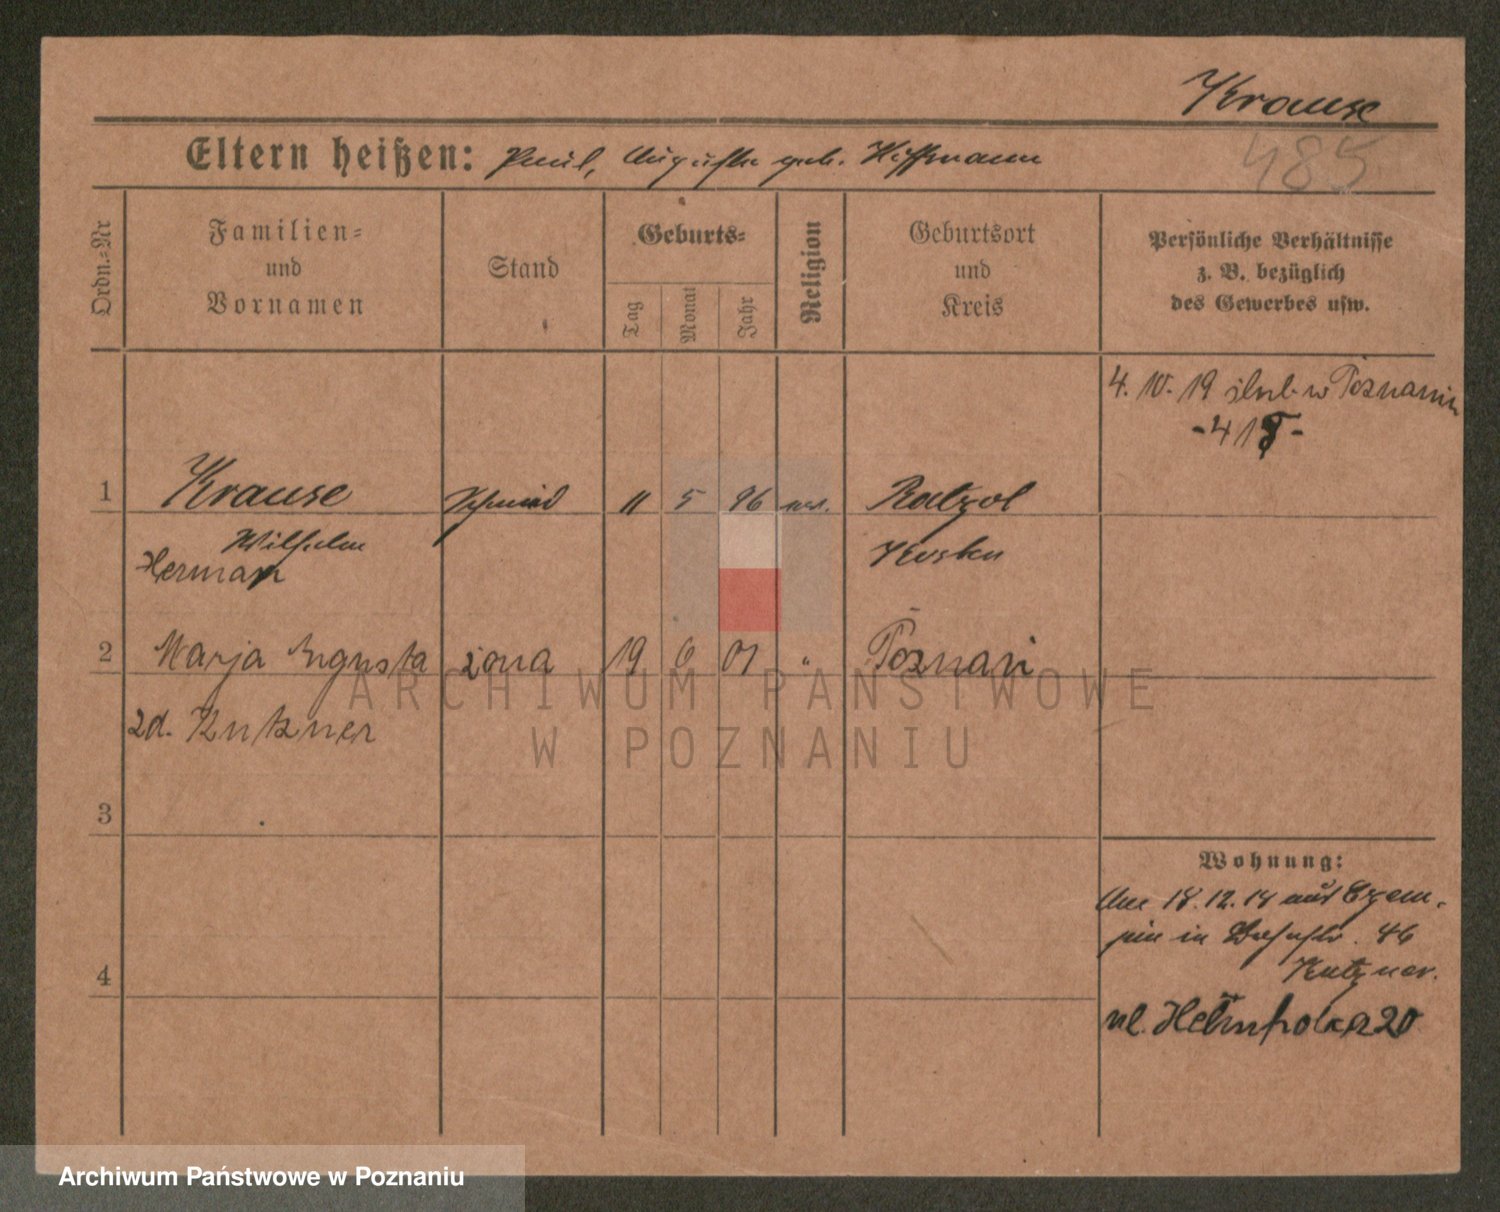 Krause
485
Eltern heißen: Paul, Auguste geb. Hoffmann
Ordn.-Nr
Familien-
und
Vornamen
Stand
Geburts-
Tag
Monat
Jahr
Religion
Geburtsort
und
Kreis
Persönliche Verhältnisse
z. B. bezüglich
des Gewerbes usw.
4. IV. 19 ślub w Poznaniu
- 418 -
1 Krause Schmied 11 5 96 ev.
Wilhelm
Herman
2 Marja Augusta żona 19 6 01 " Poznań
zd. Kutzner
3
Wohnung:
Am 18.12.18 aus
in 46
Kutzner.
4
ul. 20
ARCHIWUM PAŃSTWOWE
W POZNANIU
Archiwum Państwowe w Poznaniu